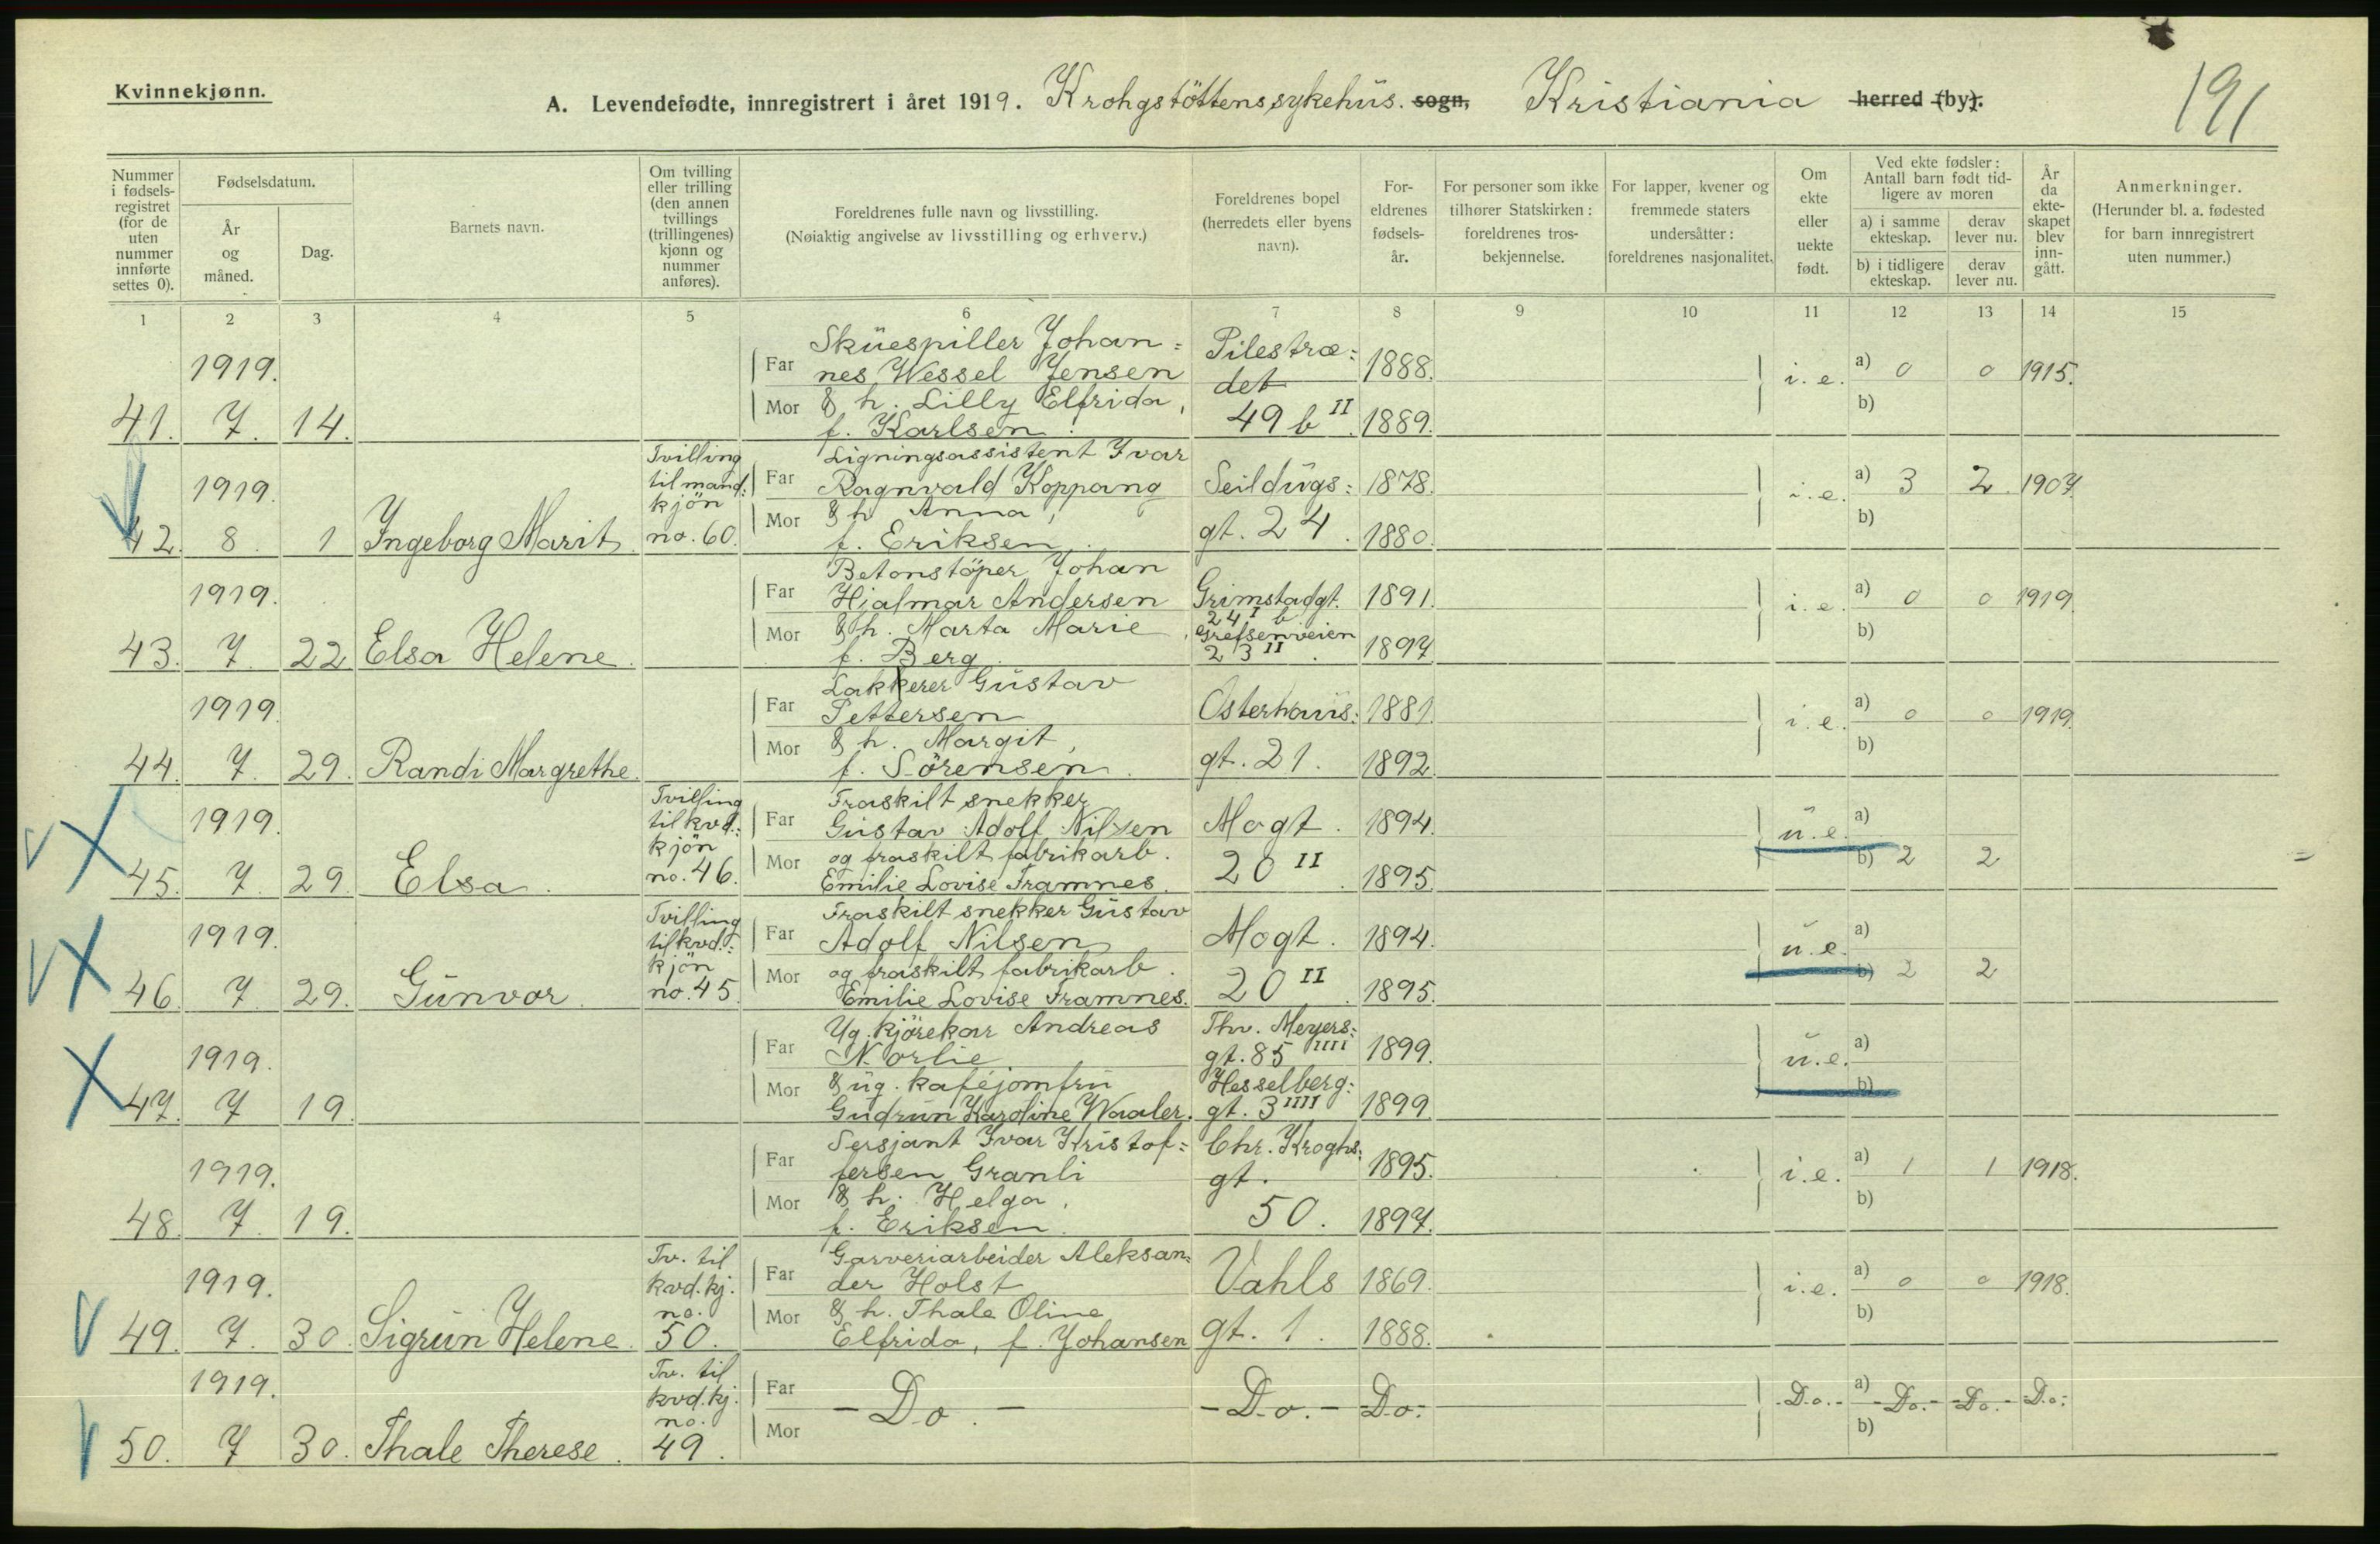 Kvinnekjønn.
A. Levendefødte, innregistrert i året 1919. Krohgstöttens sykehus. sogn, Kristiania herred (by).
191
Nummer i fødsels-registret (for de uten nummer innførte settes 0).
Fødselsdatum.
År og måned.
Dag.
Barnets navn.
Om tvilling eller trilling (den annen tvillings (trillingenes) kjønn og nummer anføres).
Foreldrenes fulle navn og livsstilling.
(Nøiaktig angivelse av livsstilling og erhverv.)
Foreldrenes bopel (herredets eller byens navn).
For-eldrenes fødsels-år.
For personer som ikke tilhører Statskirken: foreldrenes tros-bekjennelse.
For lapper, kvener og fremmede staters undersåtter: foreldrenes nasjonalitet.
Om ekte eller uekte født.
Ved ekte fødsler: Antall barn født tid-ligere av moren
a) i samme ekteskap.
derav lever nu.
b) i tidligere ekteskap.
derav lever nu.
År da ekte-skapet blev inn-gått.
Anmerkninger.
(Herunder bl. a. fødested for barn innregistrert uten nummer.)
1 2 3 4 5 6 7 8 9 10 11 12 13 14 15
1919.
41. 7. 14.
Far Skuespiller Johan=
nes Wessel Jensen
Mor & h. Lilly Elfrida,
f. Karlsen.
Pilestræ=
det
49 b II.
1888.
1889.
i. e. a) 0 0 1915.
b)
1919.
42. 8. 1 Ingeborg Marit.
Tvilling
til mand=
kjön
no. 60.
Far Ligningsassistent Ivar
Ragnvald Koppang
Mor & h. Anna,
f. Eriksen.
Seildugs=
gt. 24.
1878.
1880.
i. e. a) 3 2. 1907.
b)
1919.
43. 7. 22 Elsa Helene.
Far Betonstöper Johan
Hjalmar Andersen
Mor & h. Marta Marie,
f. Berg.
Grimstadgt.
24 I b
Grefsenveien
23 II.
1891.
1897
i. e. a) 0 0 1919.
b)
1919.
44. 7. 29. Randi Margrethe.
Far Lakkerer Gustav
Pettersen
Mor & h. Margit,
f. Sörensen.
Osterhaus=
gt. 21.
1881.
1892.
i. e. a) 0 0 1919.
b)
1919.
45. 7. 29. Elsa.
Tvilling
til kvd.=
kjön
no. 46.
Far Fraskilt snekker
Gustav Adolf Nilsen
Mor og fraskilt fabrikarb.
Emilie Lovise Framnes.
Mogt.
20 II.
1894.
1895.
u. e. a)
b) 2 2
1919.
46. 7. 29. Gunvor.
Tvilling
til kvd.=
kjön
no. 45.
Far Fraskilt snekker Gustav
Adolf Nilsen
Mor og fraskilt fabrikarb.
Emilie Lovise Framnes.
Mogt.
20 II.
1894.
1895.
u. e. a)
b) 2 2
1919.
47. 7 19.
Far Ug. kjörekar Andreas
Norlie
Mor & ug. kaféjomfru
Gudrun Karoline Waaler.
Thv. Meyers=
gt. 85 IIII
Hesselberg=
gt. 3 IIII
1899.
1899.
u. e. a)
b)
1919.
48. 7. 19.
Far Sersjant Ivar Kristof=
fersen Granli
Mor & h. Helga,
f. Eriksen.
Chr. Kroghs=
gt.
50.
1895.
1897.
i. e. a) 1 1 1918.
b)
1919.
49. 7. 30. Sigrun Helene.
Tv. til
kvd. kj.
no.
50.
Far Garveriarbeider Aleksan=
der Holst
Mor & h. Thale Oline
Elfrida, f. Johansen
Vahls
gt. 1.
1869.
1888.
i. e. a) 0 0 1918.
b)
1919.
50. 7 30. Thale Therese.
Tv. til
kvd. kj.
no.
49.
Far
Mor
- Do. - - Do. - -Do- -Do.- a) -Do.- -Do.- -Do.-
b)